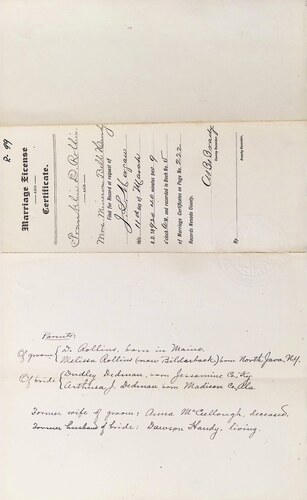 P. 99
Marriage License
AND
Certificate.
Franklin D Rollins
AND
Mrs. Minnie Bell Handy
Filed for Record at request of
J. L. Morgan
this 11 day of March
A.D. 1924, at minutes past 9
o'clock A.M. and recorded in Book No. 5
of Marriage Certificates on Page No. 222
Records Nevada County.
County Recorder.
By
Deputy Recorder.
Parents:
Of groom { D. Rollins, born in Maine,
Melissa Rollins (now Bilderback) born North Java, N.Y.
Of bride { Dudley Dedman, born Jessamine Co. Ky
Arthusa J. Dedman born Madison Co. Ala
Former wife of groom; Anna McCullough, deceased,
Former husband of bride; Dawson Handy, living.